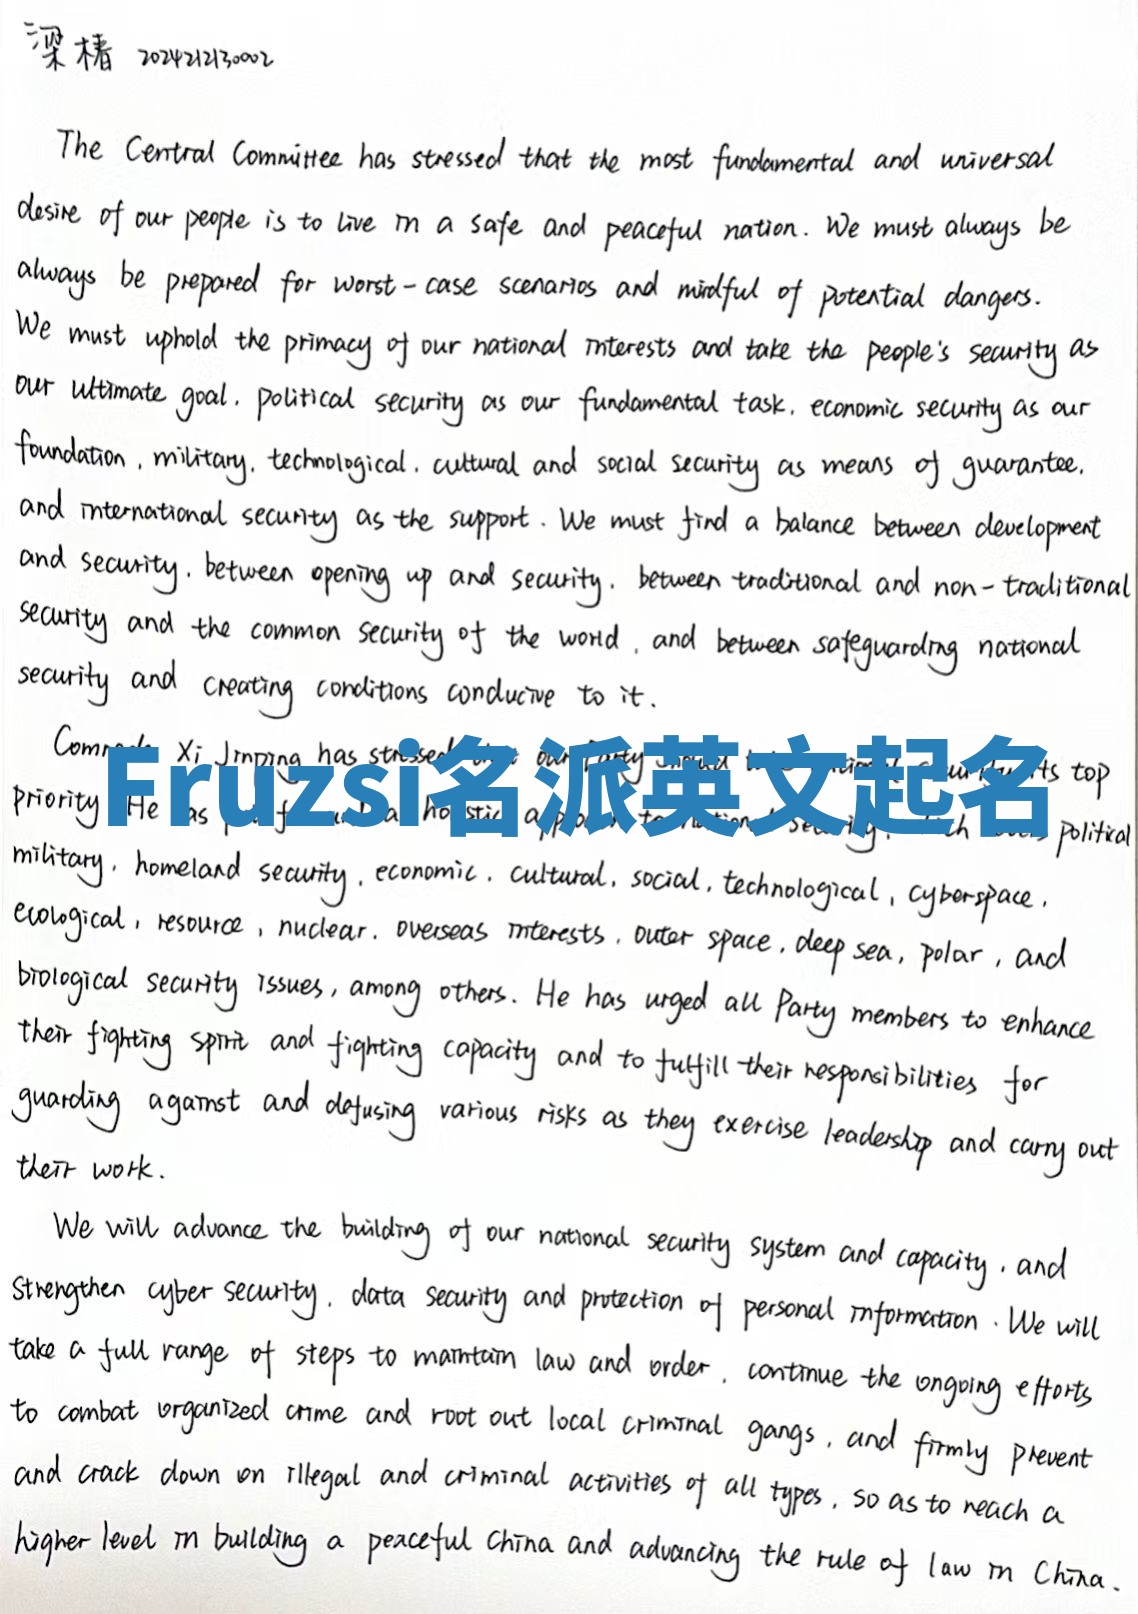 梁椿 2024212130002
The Central Committee has stressed that the most fundamental and universal
desire of our people is to live in a safe and peaceful nation. We must always be
always be prepared for worst-case scenarios and mindful of potential dangers.
We must uphold the primacy of our national interests and take the people's security as
our ultimate goal, political security as our fundamental task, economic security as our
foundation, military, technological, cultural and social security as means of guarantee,
and international security as the support. We must find a balance between development
and security, between opening up and security, between traditional and non-traditional
security and the common security of the world, and between safeguarding national
security and creating conditions conducive to it.
Xi Jinping has stressed our Party top
Fruzsi名派英文起名
priority He political
military, homeland security, economic, cultural, social, technological, cyberspace,
ecological, resource, nuclear, overseas interests, outer space, deep sea, polar, and
biological security issues, among others. He has urged all Party members to enhance
their fighting spirit and fighting capacity and to fulfill their responsibilities for
guarding against and defusing various risks as they exercise leadership and carry out
their work.
We will advance the building of our national security system and capacity, and
strengthen cyber security, data security and protection of personal information. We will
take a full range of steps to maintain law and order, continue the ongoing efforts
to combat organized crime and root out local criminal gangs, and firmly prevent
and crack down on illegal and criminal activities of all types, so as to reach a
higher level in building a peaceful China and advancing the rule of law in China.